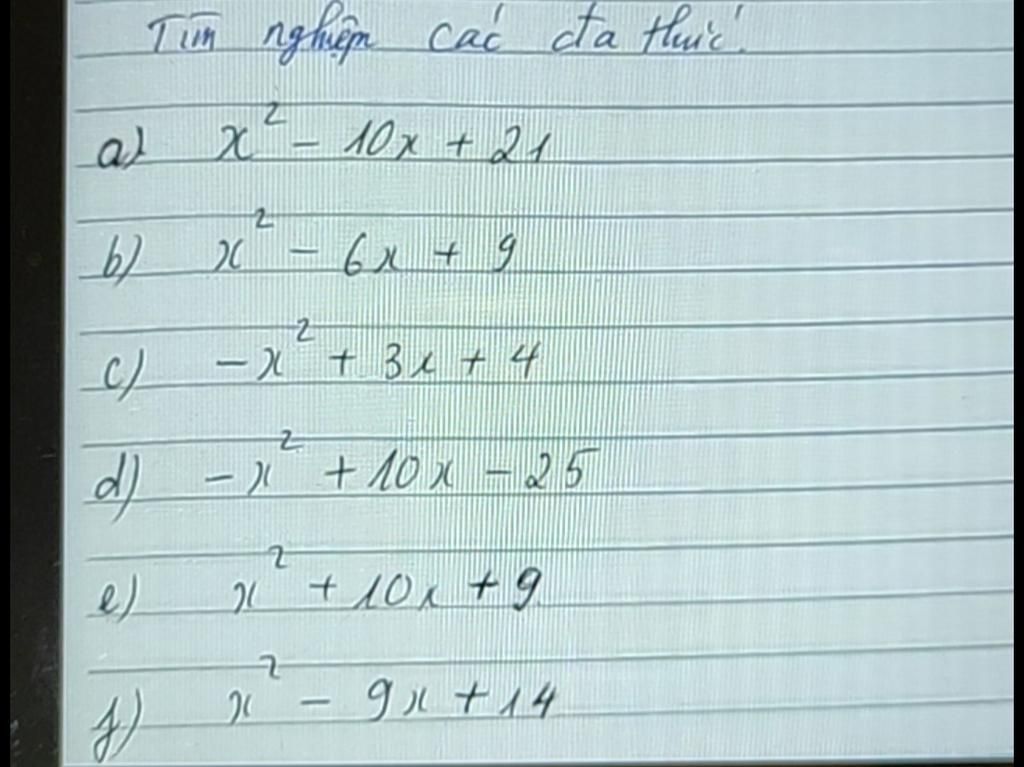 Tìm nghiệm các đa thức.
a) x² - 10x + 21
b) x² - 6x + 9
c) -x² + 3x + 4
d) -x² + 10x - 25
e) x² + 10x + 9
f) x² - 9x + 14